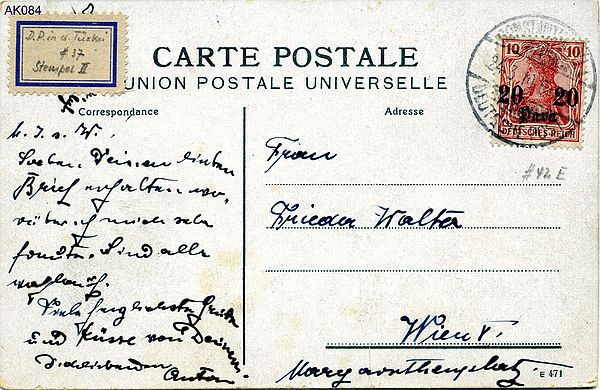 AK084
D.P. in d. Türkei
#37
Stempel II
CARTE POSTALE
UNION POSTALE UNIVERSELLE
Correspondance
Adresse
10 10
20 20
Para
DEUTSCHES REICH
#42 E
Soeben Deinen lieben
Brief erhalten wo-
rüber ich mich sehr
freute. Sind alle
wohlauf.
Viele herzlichste Grüße
und Küsse von Deinem
Dichliebenden
Anton
Frau
Frieda Walter
Wien V.
Margarethenplatz
E 471